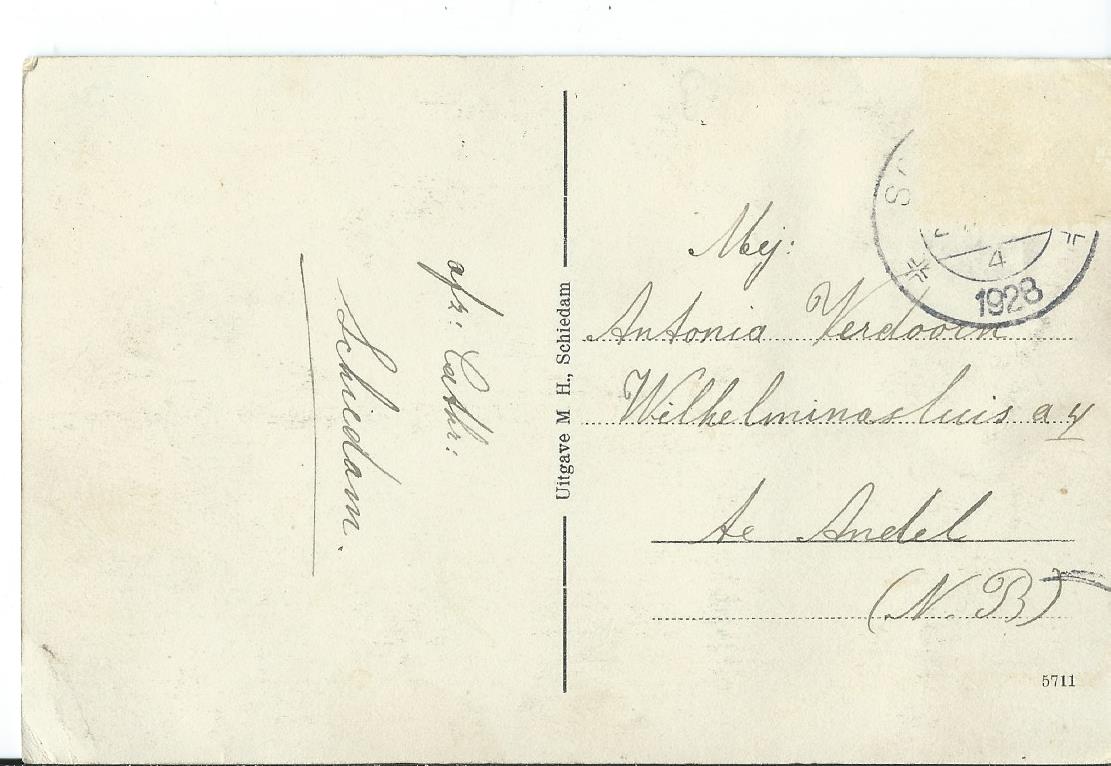 afz: Cathr:
Schiedam.
Uitgave M H., Schiedam
4
1928
Mej:
Antonia Verdoorn
Wilhelminasluis a
te Andel
(N.B)
5711